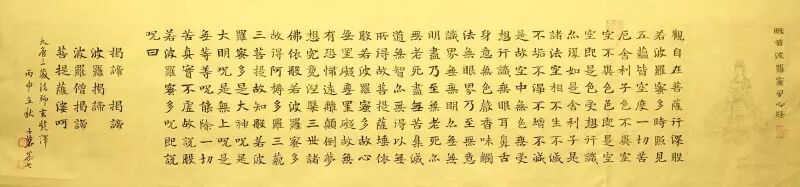 般若波羅蜜多心經
觀自在菩薩行深般
若波羅蜜多時照見
五蘊皆空度一切苦
厄舍利子色不異空
空不異色色即是空
空即是色受想行識
亦復如是舍利子是
諸法空相不生不滅
不垢不淨不增不減
是故空中無色無受
想行識無眼耳鼻舌
身意無色聲香味觸
法無眼界乃至無意
識界無無明亦無無
明盡乃至無老死亦
無老死盡無苦集滅
道無智亦無得以無
所得故菩提薩埵依
般若波羅蜜多故心
無罣礙無罣礙故無
有恐怖遠離顛倒夢
想究竟涅槃三世諸
佛依般若波羅蜜多
故得阿耨多羅三藐
三菩提故知般若波
羅蜜多是大神咒是
大明咒是無上咒是
無等等咒能除一切
苦真實不虛故說般
若波羅蜜多咒即說
咒曰
揭諦 揭諦
波羅揭諦
波羅僧揭諦
菩提薩婆呵
大唐三藏法師玄奘譯
丙申立秋